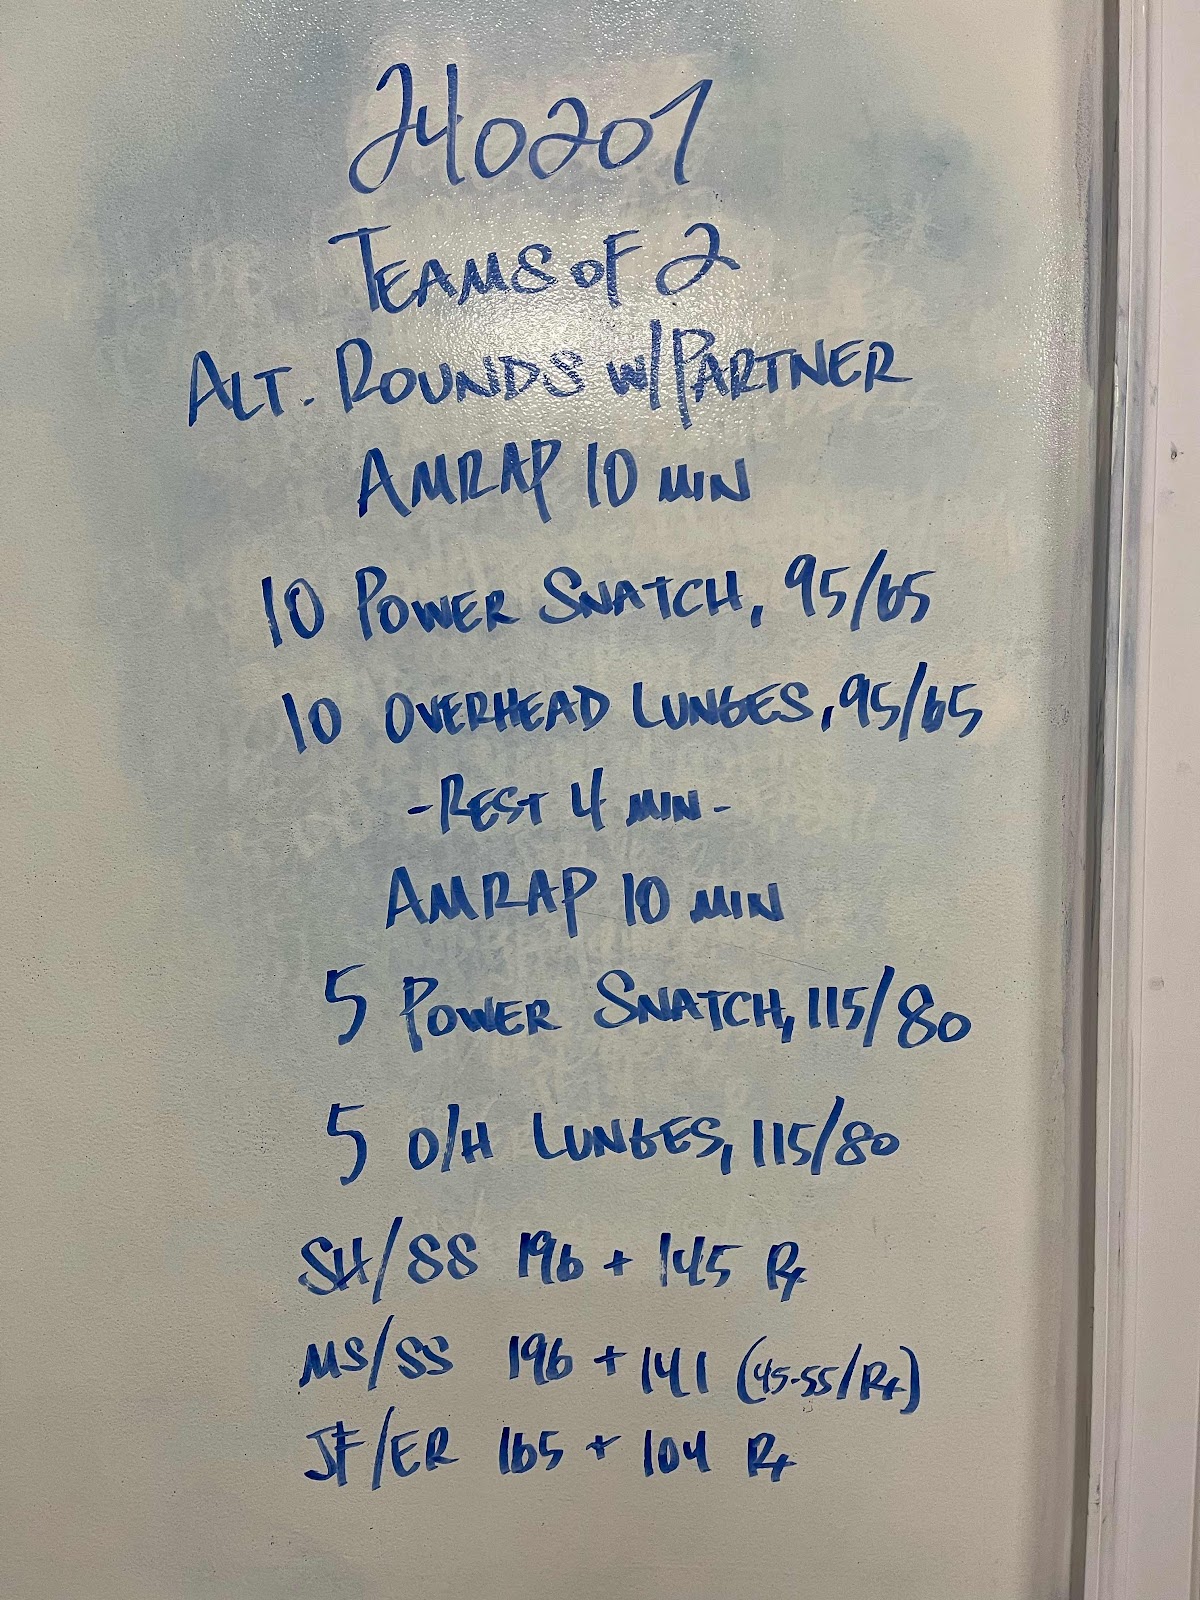 240207
TEAMS OF 2
ALT. ROUNDS W/PARTNER
AMRAP 10 MIN
10 POWER SNATCH, 95/65
10 OVERHEAD LUNGES, 95/65
-REST 4 MIN-
AMRAP 10 MIN
5 POWER SNATCH, 115/80
5 O/H LUNGES, 115/80
SH/SS 196 + 145 Rx
MS/SS 196 + 141 (45-55/Rx)
JF/ER 165 + 104 Rx